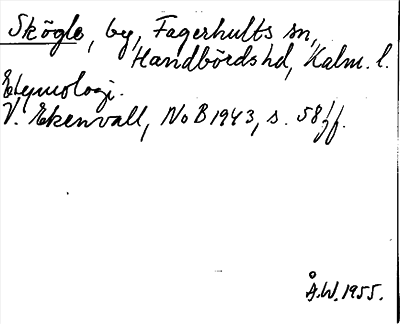 Skögle, by, Fagerhults sn,
Handbörds hd, Kalm. l.
Etymologi.
V. Ekenvall, NoB 1943, s. 58 ff.
Å.W. 1955.